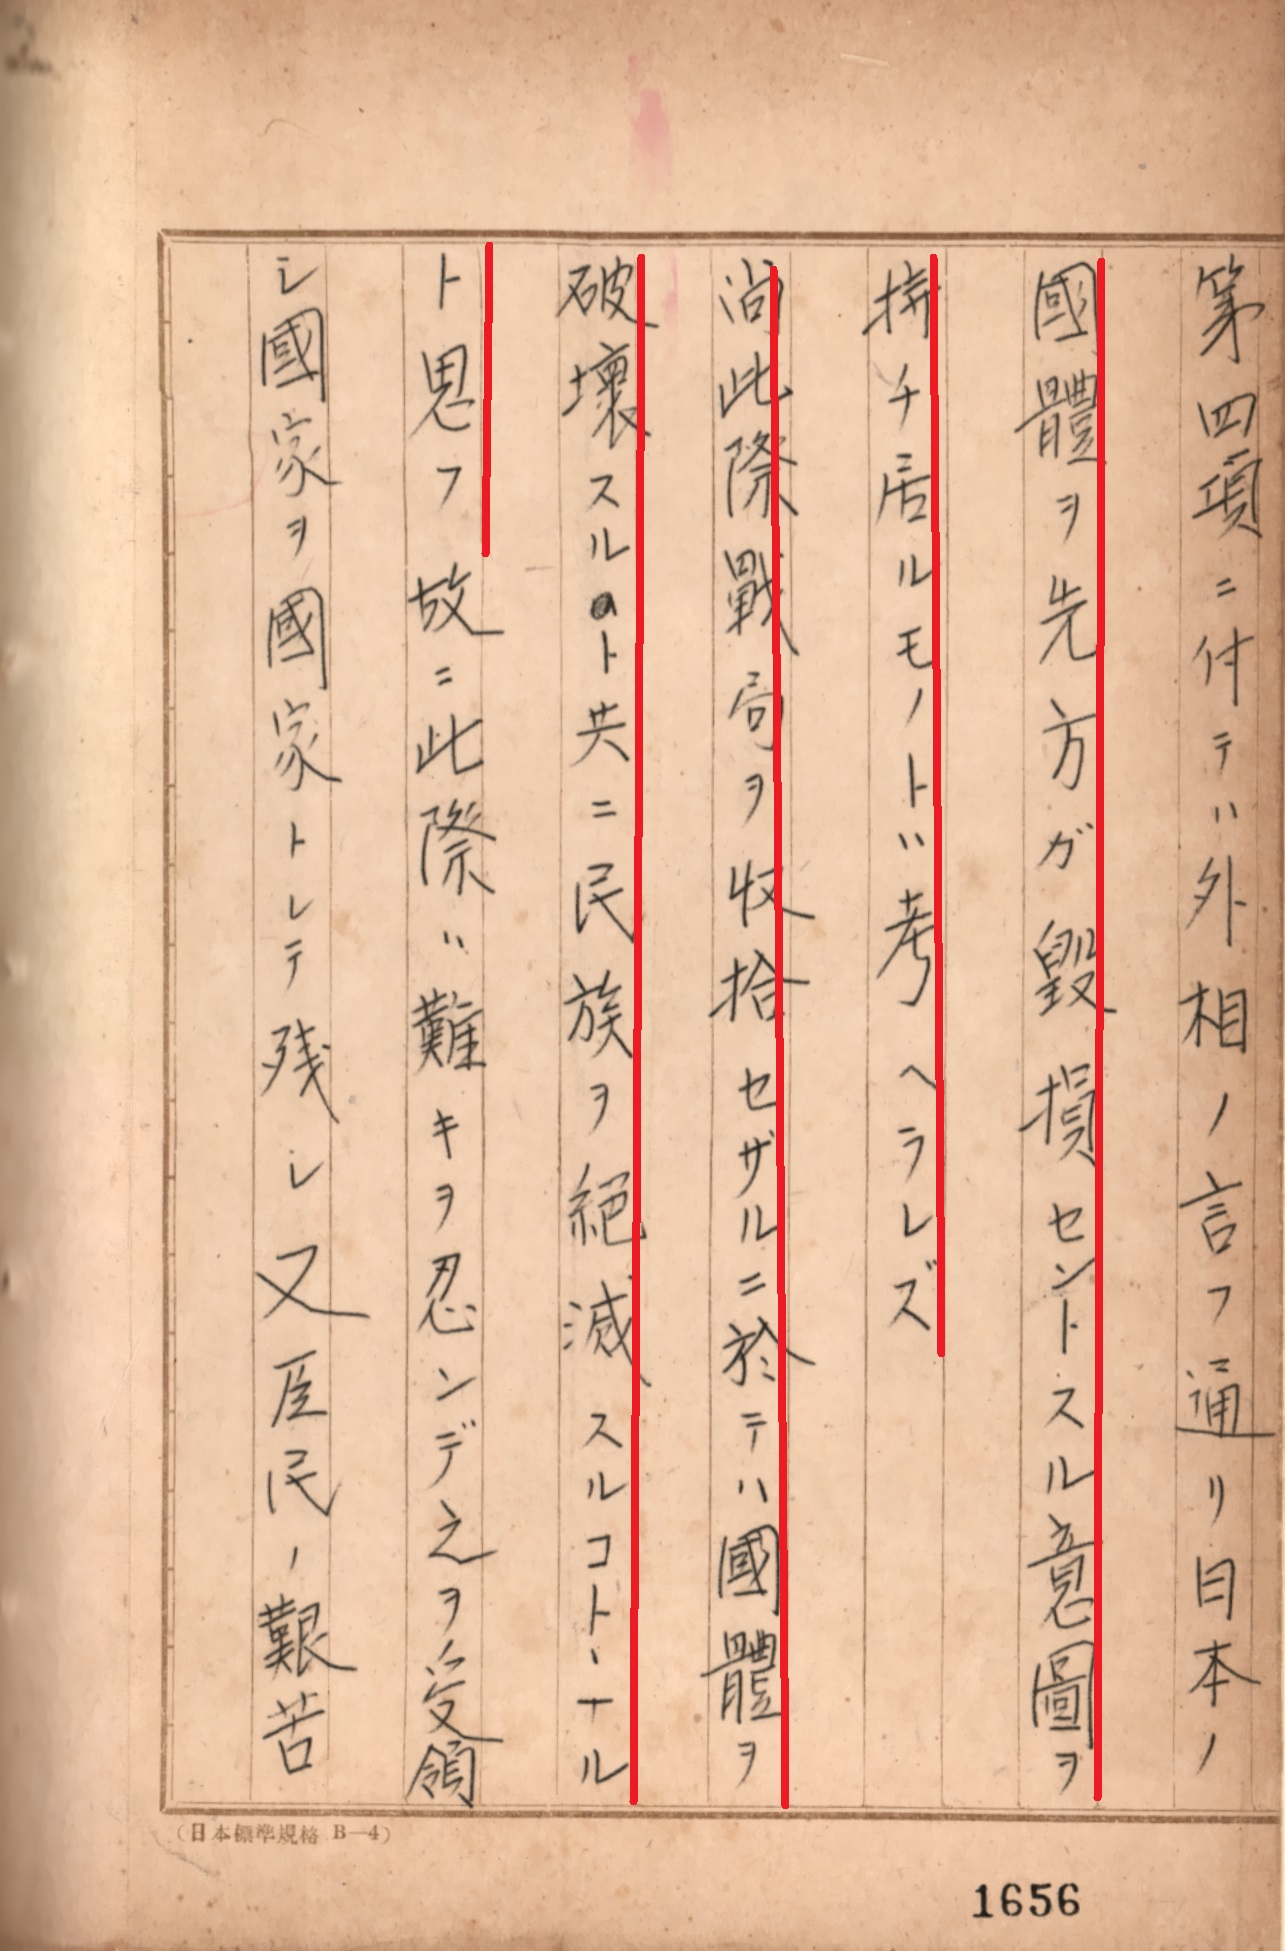 第四項ニ付テハ外相ノ言フ通リ日本ノ
國體ヲ先方ガ毀損セントスル意圖ヲ
持チ居ルモノトハ考ヘラレズ
尚此際戰局ヲ收拾セザルニ於テハ國體ヲ
破壞スルト共ニ民族ヲ絕滅スルコトヽナル
ト思フ故ニ此際ハ難キヲ忍ンデ之ヲ受領
シ國家ヲ國家トシテ残シ又臣民ノ艱苦
(日本標準規格 B—4)
1656